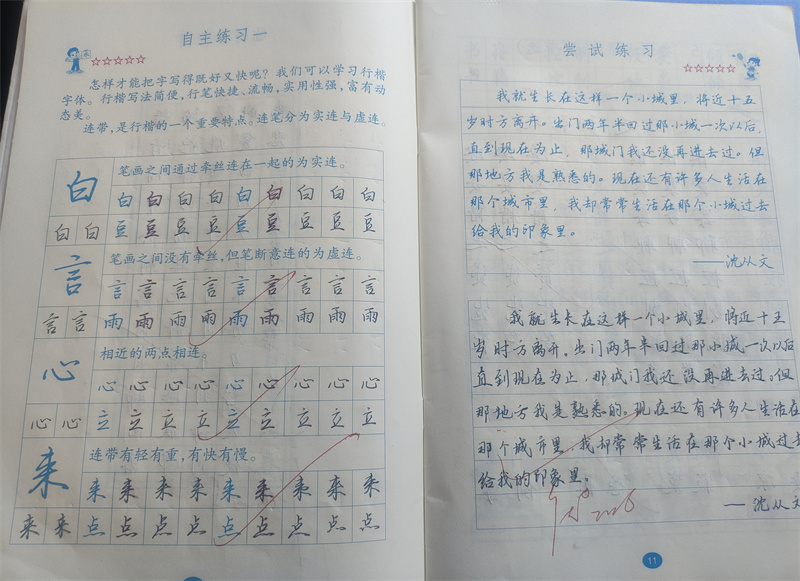 自主练习一
怎样才能把字写得既好又快呢？我们可以学习行楷
字体。行楷写法简便，行笔快捷、流畅，实用性强，富有动
态美。
连带，是行楷的一个重要特点。连笔分为实连与虚连。
笔画之间通过牵丝连在一起的为实连。
白 白 白 白 白 白 白 白 白 白
白 白 豆 豆 豆 豆 豆 豆 豆 豆 豆
笔画之间没有牵丝，但笔断意连的为虚连。
言 言 言 言 言 言 言 言 言 言
言 言 雨 雨 雨 雨 雨 雨 雨 雨 雨
相近的两点相连。
心 心 心 心 心 心 心 心 心 心
心 心 立 立 立 立 立 立 立 立 立
连带有轻有重，有快有慢。
来 来 来 来 来 来 来 来 来 来
来 来 点 点 点 点 点 点 点 点 点
尝试练习
我就生长在这样一个小城里，将近十五
岁时方离开。出门两年半回过那小城一次以后，
直到现在为止，那城门我还没再进去过。但
那地方我是熟悉的。现在还有许多人生活在
那个城市里，我却常常生活在那个小城过去
给我的印象里。
——沈从文
我就生长在这样一个小城里，将近十五
岁时方离开。出门两年半回过那小城一次以后
直到现在为止，那城门我还没再进去过。但
那地方我是熟悉的。现在还有许多人生活在
那个城市里，我却常常生活在那个小城过去
给我的印象里。
——沈从文
11